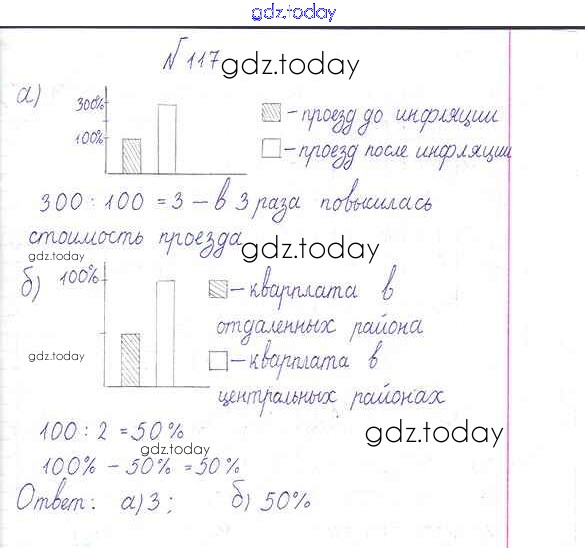 gdz.today
N 117
gdz.today
а)
300%
100%
– проезд до инфляции
– проезд после инфляции
300 : 100 = 3 – в 3 раза повысилась
стоимость проезда
gdz.today
б)
100%
– квартплата в
отдаленных района
gdz.today
– квартплата в
центральных районах
100 : 2 = 50%
gdz.today
gdz.today
100% – 50% = 50%
Ответ: а) 3; б) 50%